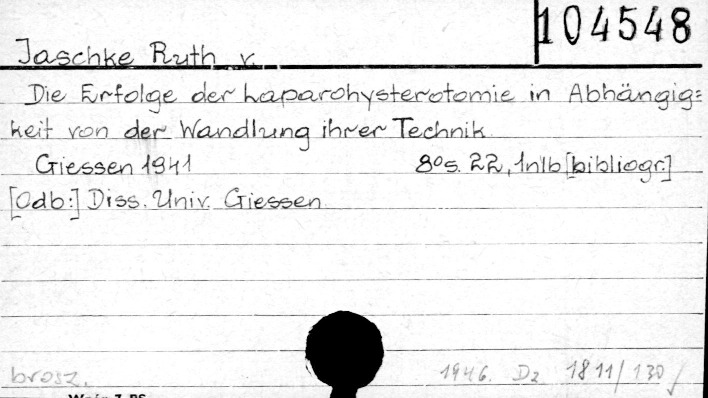 104548
Jaschke Ruth v.
Die Erfolge der Laparohysterotomie in Abhängig=
keit von der Wandlung ihrer Technik
Giessen 1941 8os. 22, 1nlb [bibliogr.]
[Odb:] Diss. Univ. Giessen
brosz. 1946. Dz 1811/130